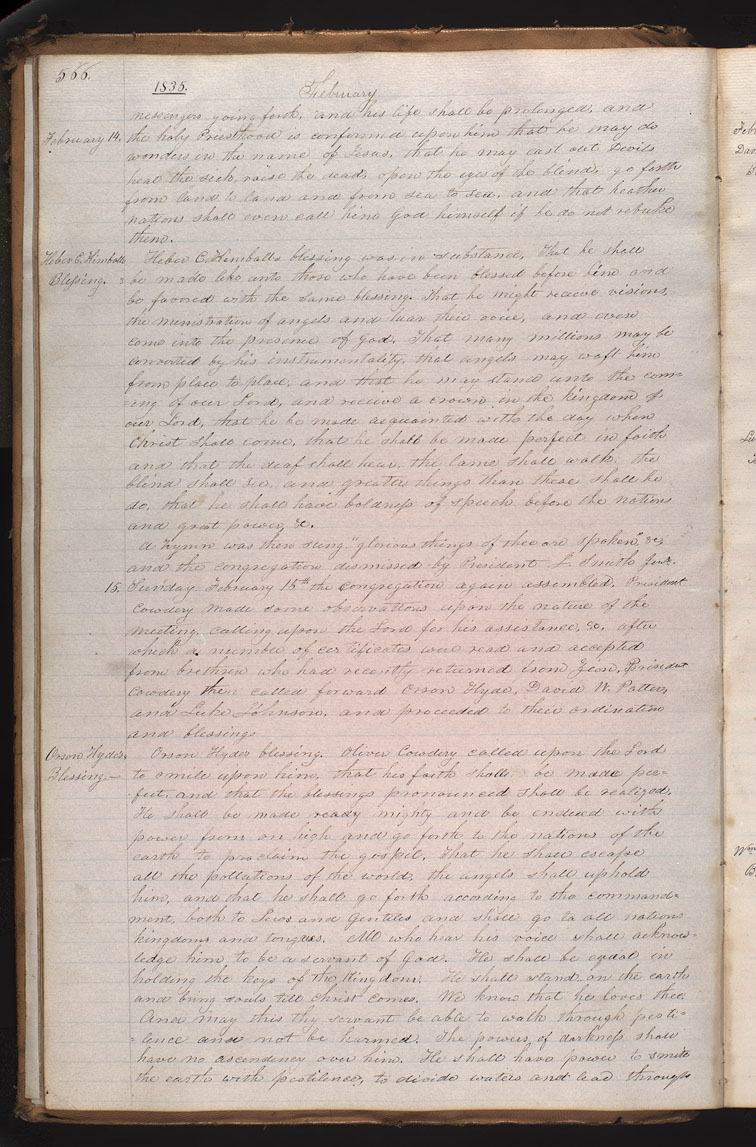 566.
1835.
February
messengers going forth, and his life shall be prolonged, and
February 14. the holy Priesthood is conferred upon him that he may do
wonders in the name of Jesus, that he may cast out Devils
heal the sick, raise the dead, open the eyes of the blind, go forth
from land to land and from sea to sea, and that heathen
nations shall even call him God himself if he do not rebuke
them.
Heber C. Kimballs Heber C. Kimballs blessing was in substance, That he shall
Blessing. be made like unto those who have been blessed before him and
be favored with the same blessing. That he might receive visions,
the ministration of angels and hear their voice, and even
come into the presence of God, That many millions may be
converted by his instrumentality, that angels may waft him
from place to place, and that he may stand unto the com=
=ing of our Lord, and receive a crown in the kingdom of
our Lord, that he be made acquainted with the day when
Christ shall come, that he shall be made perfect in faith
and that the deaf shall hear, the lame shall walk, the
blind shall see, and greater things than these shall he
do, that he shall have boldness of speech before the nations
and great power, &c.
A Hymn was then sung. "glorious things of thee are spoken", &c,
and the congregation dismissed by President J. Smith Junr.
15. Sunday February 15th the congregation again assembled. President
Cowdery made some observations upon the nature of the
meeting, calling upon the Lord for his assistance, &c. after
which a number of certificates were read and accepted
from brethren who had recently returned from Zion, President
Cowdery then called forward Orson Hyde, David W. Patten,
and Luke Johnson, and proceeded to their ordinations
and blessings
Orson Hydes Orson Hydes blessing. Oliver Cowdery called upon the Lord
Blessing.— to smile upon him, that his faith shall be made per=
fect, and that the blessings pronounced shall be realized,
He shall be made ready mighty and be endued with
power from on high and go forth to the nations of the
earth to proclaim the gospel, That he shall escape
all the pollutions of the world, the angels shall uphold
him, and that he shall go forth according to the command=
ment, both to Jews and Gentiles and shall go to all nations
kingdoms and tongues. All who hear his voice shall acknow=
ledge him to be a servant of God. He shall be equal in
holding the keys of the Kingdom. He shall stand on the earth
and bring souls till Christ comes. We know that he loves thee,
And may this thy servant be able to walk through pesti=
=lence and not be harmed. The powers of darkness shall
have no ascendency over him. He shall have power to smite
the earth with pestilence, to divide waters and lead through